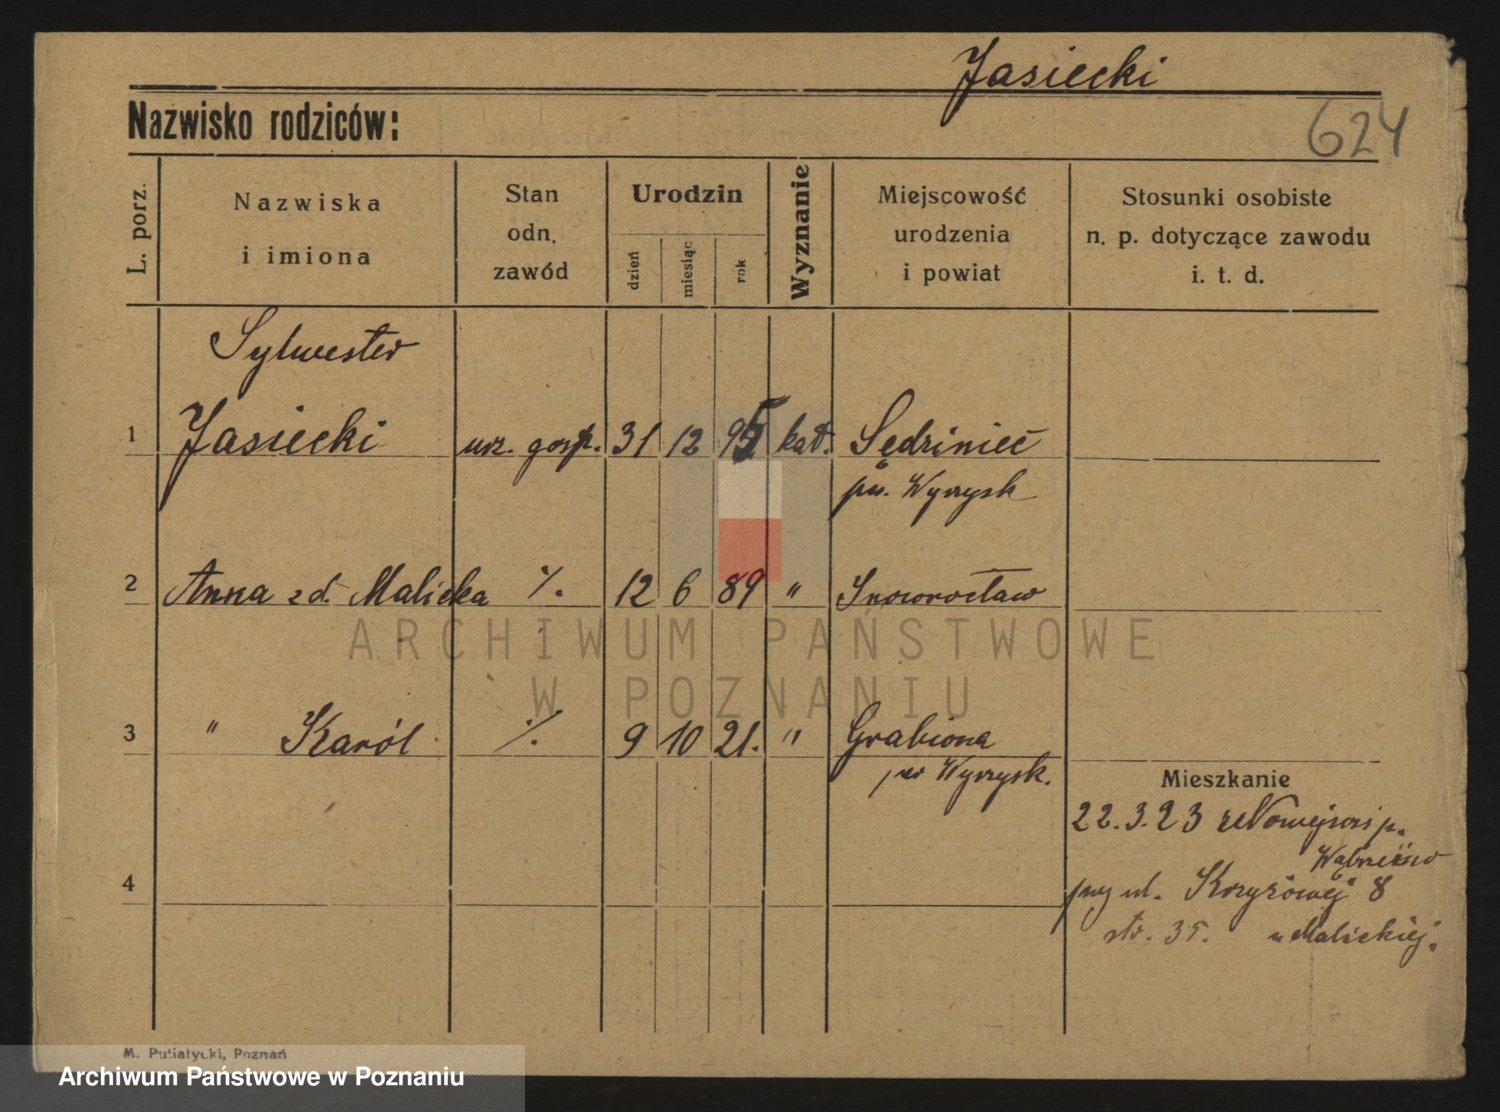 Jasiecki
624
Nazwisko rodziców:
L. porz.
Nazwiska
i imiona
Stan
odn.
zawód
Urodzin
dzień
miesiąc
rok
Wyznanie
Miejscowość
urodzenia
i powiat
Stosunki osobiste
n. p. dotyczące zawodu
i. t. d.
Sylwester
1 Jasiecki urz. gosp. 31 12 95 kat. Sędziniec
pw. Wyrzysk
2 Anna zd. Malicka %. 12 6 89 " Inowrocław
ARCHIWUM PAŃSTWOWE
W POZNANIU
3 " Karól %. 9 10 21. " Grabiona
pw Wyrzysk.
Mieszkanie
22.3.23 z Nowejwsi p.
Wąbrzeźno
4
przy ul. Krzyżowej 8
str. 35. u Malickiej.
M. Putiatycki, Poznań
Archiwum Państwowe w Poznaniu